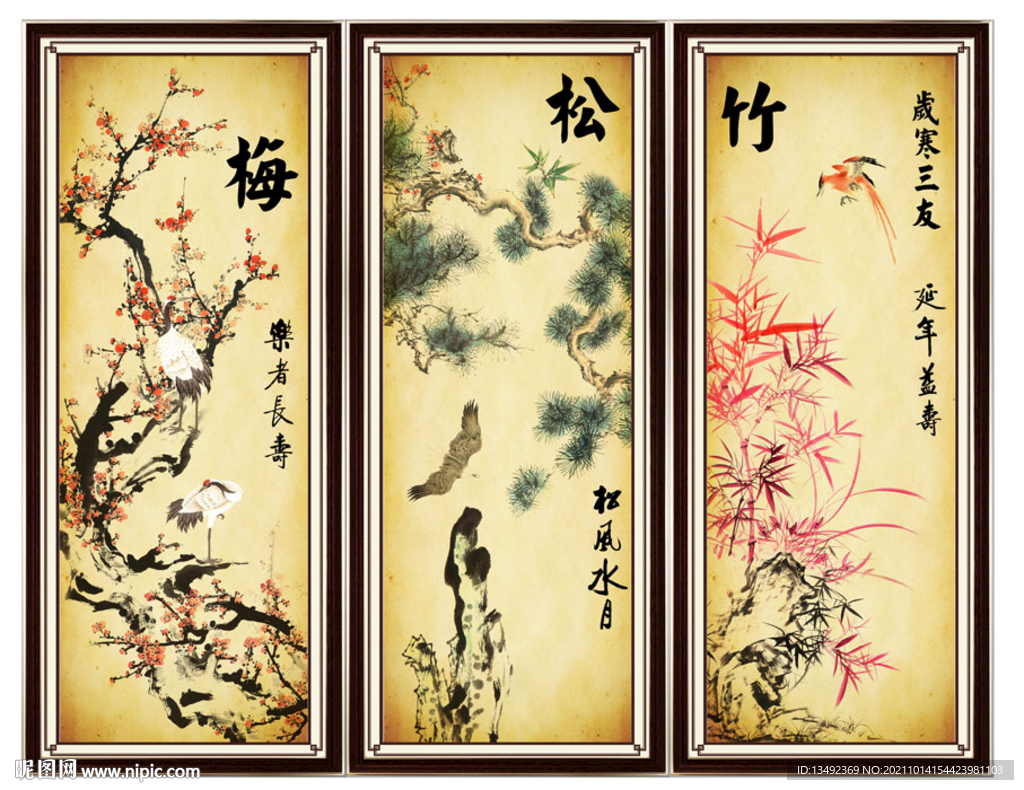 梅
樂者長壽
松
松風水月
竹
歲寒三友
延年益壽
昵图网 www.nipic.com
ID:13492369 NO:20211014154423981103